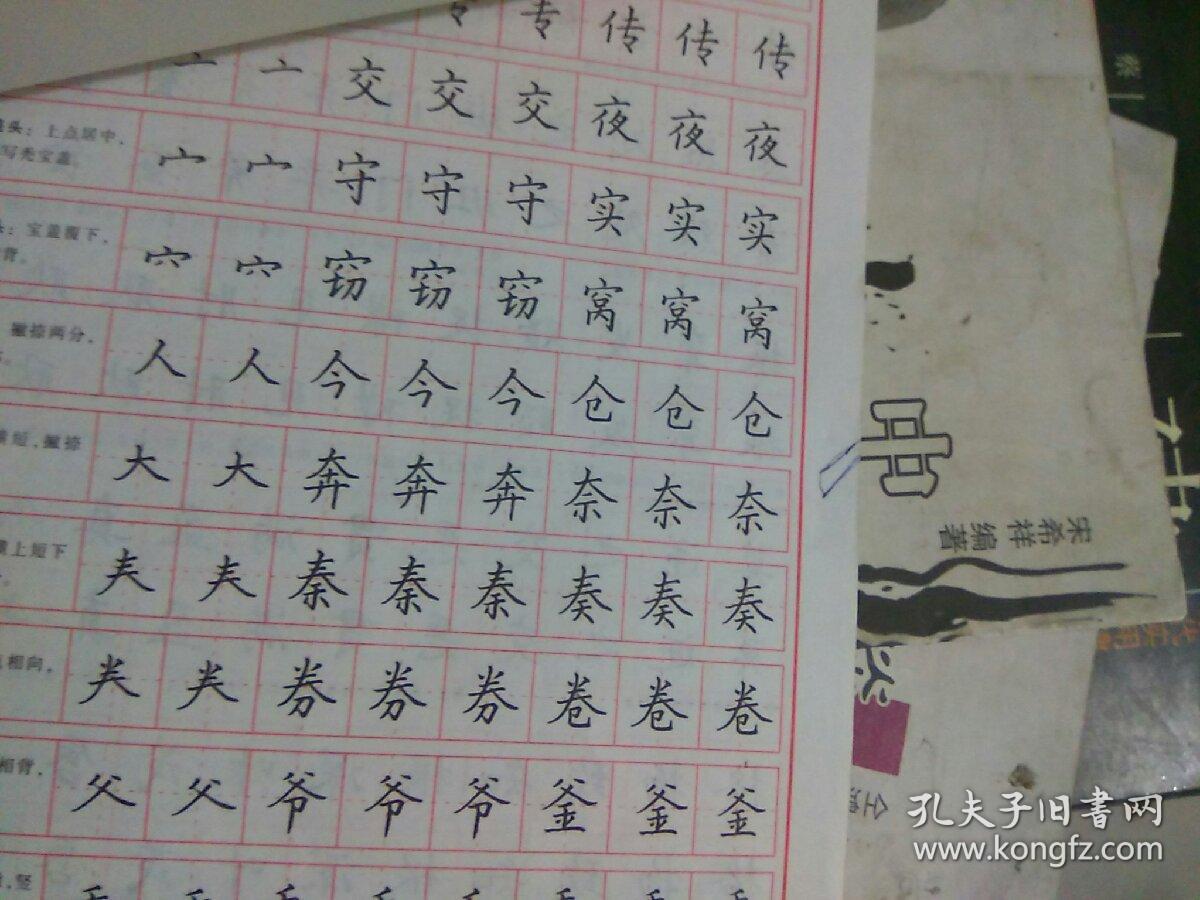 专 传 传 传
亠 亠 交 交 交 夜 夜 夜
头：上点居中，
写秃宝盖。
宀 宀 守 守 守 实 实 实
头：宝盖覆下，
背。
穴 穴 窃 窃 窃 窝 窝 窝
撇捺两分，
人 人 今 今 今 仓 仓 仓
短，撇捺
大 大 奔 奔 奔 奈 奈 奈
横上短下
𡗗 𡗗 秦 秦 秦 奏 奏 奏
相向，
龹 龹 券 券 券 卷 卷 卷
相背，
父 父 爷 爷 爷 釜 釜 釜
竖
宋希祥 编著
孔夫子旧書网
www.kongfz.com